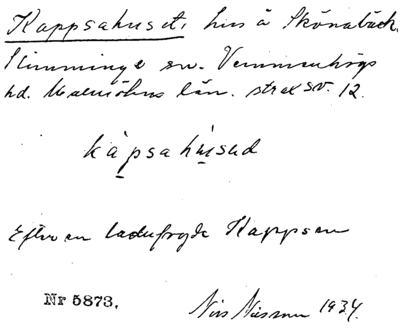 Kappsahuset: hus å Skönabäck.
Slimminge sn. Vemmenhögs
hd. Malmöhus län. strax SV. 12.
kȧpsahu̇sud
Efter en ladufogde Kappsen
Nr 5873.
Nils Nilsson 1934.